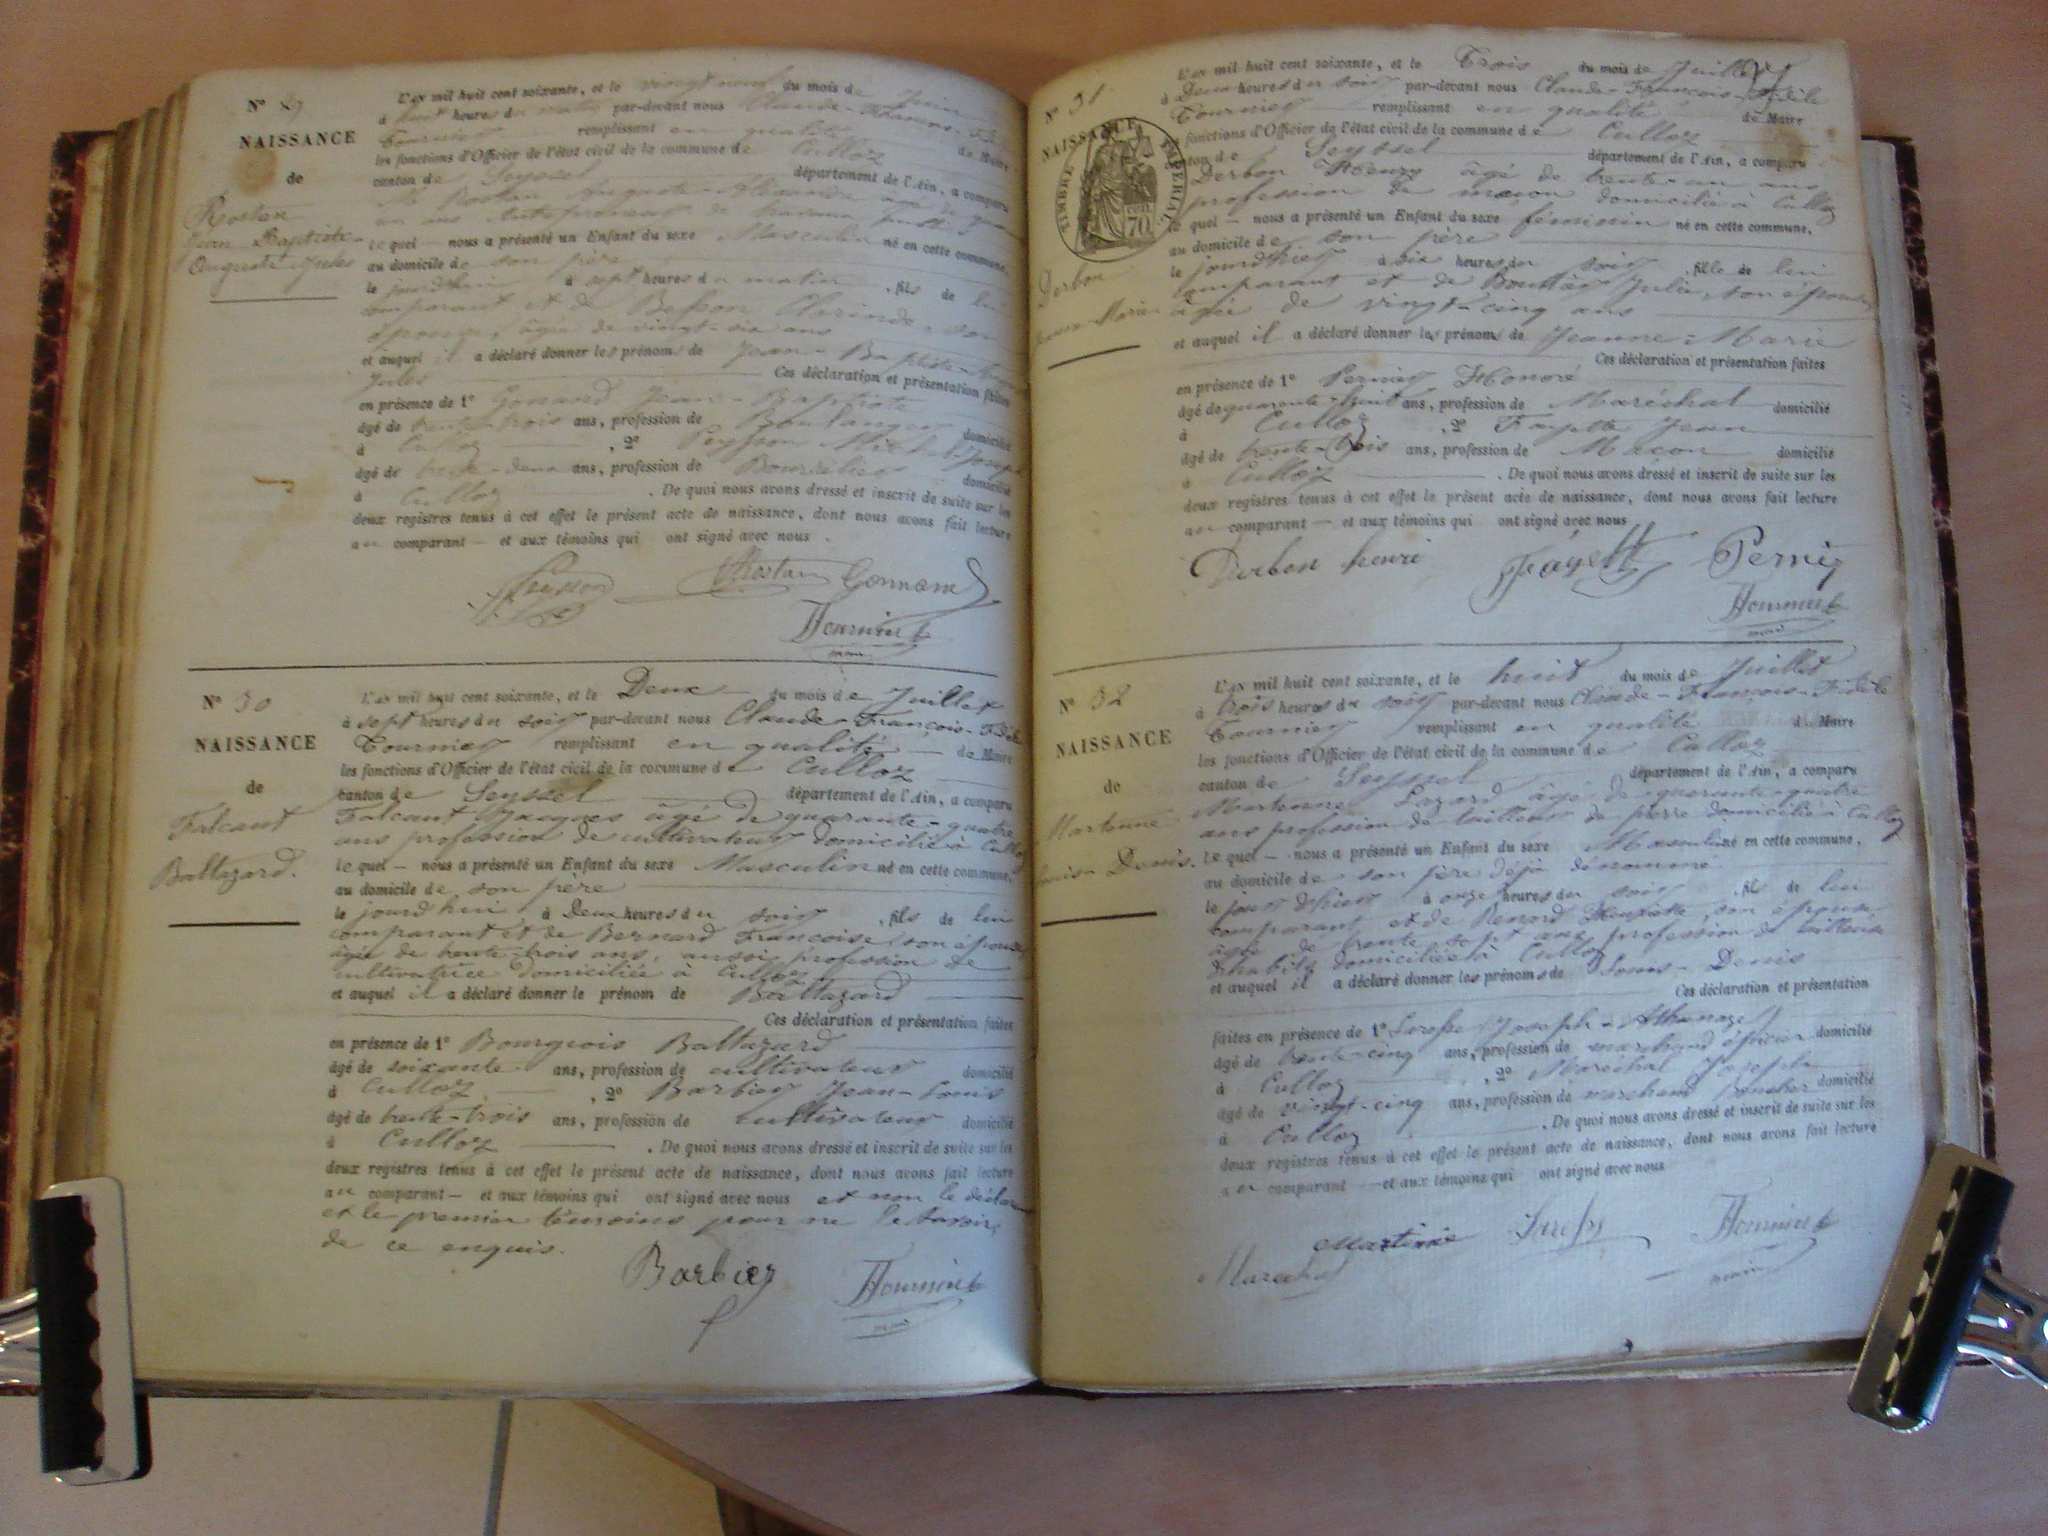 N° 29
NAISSANCE
de
Rostan
Jean Baptiste
Auguste Jules
L'an mil huit cent soixante, et le vingt neuf du mois de Juin
à huit heures du matin par-devant nous Claude-François-Fidèle
Tournier remplissant en qualité de Maire
les fonctions d'Officier de l'état civil de la commune de Culloz
canton de Seyssel département de l'Ain, a comparu
M. Rostan Auguste-Alexandre âgé de
un ans Entrepreneur de travaux publics
lequel — nous a présenté un Enfant du sexe Masculin né en cette commune,
au domicile de son père
le jourd'hui à sept heures du matin, fils de lui
comparant et de Besson Clorinde son
épouse, âgée de vingt-six ans
et auquel il a déclaré donner les prénoms de Jean-Baptiste
Jules Ces déclaration et présentation faites
en présence de 1° Gonnard Jean-Baptiste
âgé de trente-trois ans, profession de Boulanger domicilié
à Culloz, 2° Peysson Michel-Joseph
âgé de trente-deux ans, profession de Bourrelier domicilié
à Culloz. De quoi nous avons dressé et inscrit de suite sur les
deux registres tenus à cet effet le présent acte de naissance, dont nous avons fait lecture
au comparant — et aux témoins qui ont signé avec nous.
Peysson Rostan Gonnard
Tournier
maire
N° 30
NAISSANCE
de
Falcant
Baltazard.
L'an mil huit cent soixante, et le Deux du mois de Juillet
à sept heures du soir par-devant nous Claude-François-Fidèle
Tournier remplissant en qualité de Maire
les fonctions d'Officier de l'état civil de la commune de Culloz
canton de Seyssel département de l'Ain, a comparu
Falcant Jacques âgé de quarante-quatre
ans profession de cultivateur domicilié à Culloz
lequel — nous a présenté un Enfant du sexe Masculin né en cette commune,
au domicile de son père
le jourd'hui à Deux heures du soir, fils de lui
comparant et de Bernard Françoise, son épouse
âgée de trente-trois ans, aussi profession de
cultivatrice domiciliée à Culloz
et auquel il a déclaré donner le prénom de Baltazard
Ces déclaration et présentation faites
en présence de 1° Bourgeois Baltazard
âgé de soixante ans, profession de cultivateur domicilié
à Culloz, 2° Barbier Jean-Louis
âgé de trente-trois ans, profession de cultivateur domicilié
à Culloz. De quoi nous avons dressé et inscrit de suite sur les
deux registres tenus à cet effet le présent acte de naissance, dont nous avons fait lecture
au comparant — et aux témoins qui ont signé avec nous et non le déclarant
et le premier témoins pour ne le savoir,
de ce enquis.
Barbier Tournier
maire
N° 31
NAISSANCE
TIMBRE IMPÉRIAL
70
Derbon
Jeanne-Marie
L'an mil huit cent soixante, et le Trois du mois de Juillet
à Deux heures du soir par-devant nous Claude-François-Fidèle
Tournier remplissant en qualité de Maire
fonctions d'Officier de l'état civil de la commune de Culloz
ton de Seyssel département de l'Ain, a comparu
Derbon Henry âgé de trente-un ans
profession de maçon domicilié à Culloz
le quel — nous a présenté un Enfant du sexe féminin né en cette commune,
au domicile de son père
le jourd'hier à six heures du soir, fille de lui
comparant et de Julie, son épouse
âgée de vingt-cinq ans
et auquel il a déclaré donner les prénoms de Jeanne-Marie
Ces déclaration et présentation faites
en présence de 1° Pernier Honoré
âgé de quarante-huit ans, profession de Maréchal domicilié
à Culloz, 2° Fayette Jean
âgé de trente-trois ans, profession de Maçon domicilié
à Culloz. De quoi nous avons dressé et inscrit de suite sur les
deux registres tenus à cet effet le présent acte de naissance, dont nous avons fait lecture
au comparant — et aux témoins qui ont signé avec nous
Derbon henri Fayette Perniz
Tournier
maire
N° 32
NAISSANCE
de
Martinne
Louis-Denis.
L'an mil huit cent soixante, et le huit du mois de Juillet
à trois heures du soir par-devant nous Claude-François-Fidèle
Tournier remplissant en qualité de Maire
les fonctions d'Officier de l'état civil de la commune de Culloz
canton de Seyssel département de l'Ain, a comparu
Martinne Lazard âgé de quarante-quatre
ans profession de tailleur de pierre domicilié à Culloz
le quel — nous a présenté un Enfant du sexe Masculin né en cette commune,
au domicile de son père déjà dénommé
le jour d'hier à onze heures du soir, fils de lui
comparant et de Renard, son épouse
âgée de trente sept ans, profession de tailleuse
d'habits domiciliée à Culloz
et auquel il a déclaré donner les prénoms de Louis-Denis
Ces déclaration et présentation
faites en présence de 1° Joseph-Athanaze
âgé de trente-cinq ans, profession de marchand épicier domicilié
à Culloz, 2° Maréchal Joseph
âgé de vingt-cinq ans, profession de marchand Boucher domicilié
à Culloz. De quoi nous avons dressé et inscrit de suite sur les
deux registres tenus à cet effet le présent acte de naissance, dont nous avons fait lecture
au comparant — et aux témoins qui ont signé avec nous
Martinne Tournier
Marechal maire